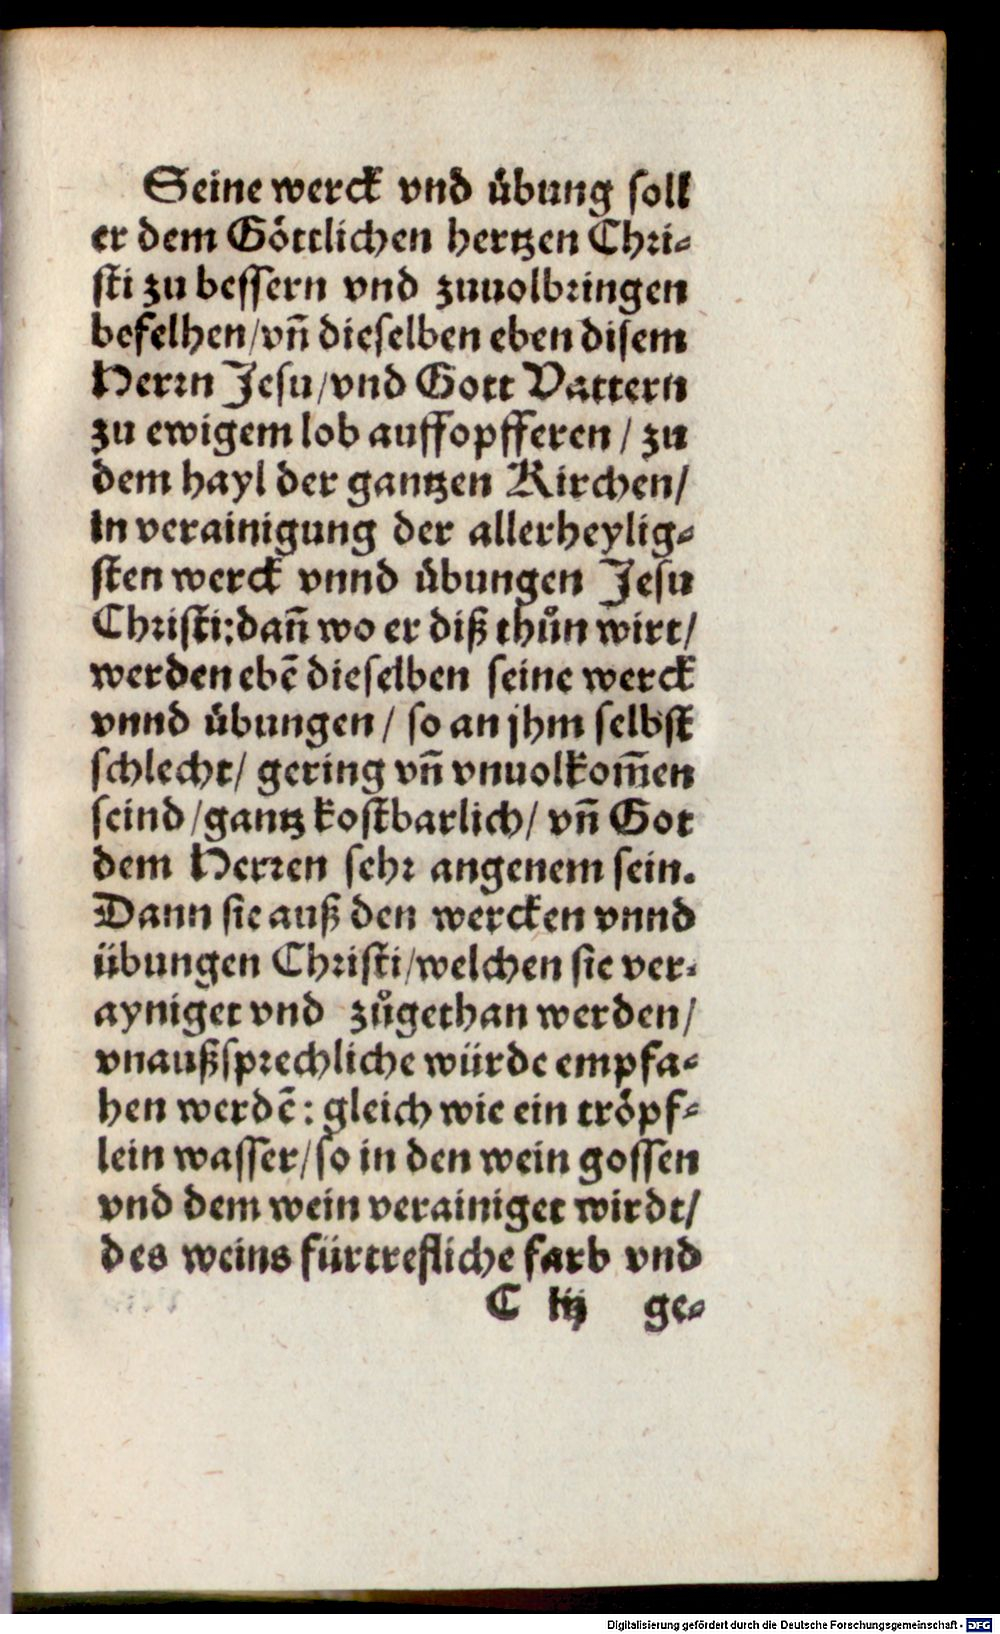 Seine werck vnd uͤbung soll
er dem Goͤttlichen hertzen Chri⸗
sti zu bessern vnd zuuolbringen
befelhen/vñ dieselben eben disem
Herrn Jesu/vnd Gott Vattern
zu ewigem lob auffopfferen / zu
dem hayl der gantzen Kirchen/
in verainigung der allerheylig⸗
sten werck vnnd uͤbungen Jesu
Christi:dañ wo er diß thuͦn wirt/
werden ebẽ dieselben seine werck
vnnd uͤbungen / so an jhm selbst
schlecht/ gering vñ vnuolkom̃en
seind/gantz kostbarlich/ vñ Got
dem Herren sehr angenem sein.
Dann sie auß den wercken vnnd
übungen Christi/welchen sie ver⸗
ayniget vnd zuͦgethan werden/
vnaußsprechliche würde empfa⸗
hen werdẽ: gleich wie ein troͤpf⸗
lein wasser/so in den wein gossen
vnd dem wein verainiget wirdt/
des weins fürtrefliche farb vnd
C iij ge⸗
Digitalisierung gefördert durch die Deutsche Forschungsgemeinschaft - DFG